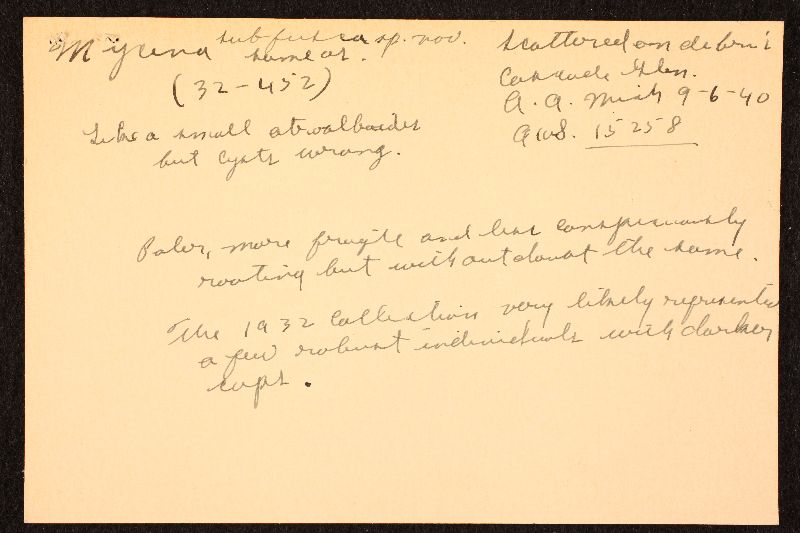 Mycena subfusca sp. nov.
same as.
(32-452)
Like a small atroalboides
but cysts wrong.
Scattered on debris
Cascade Glen.
A. A. Mich 9-6-40
AHS. 15258
Paler, more fragile and less conspicuously
rooting but without doubt the same.
The 1932 collection very likely represented
a few robust individuals with darker
caps.